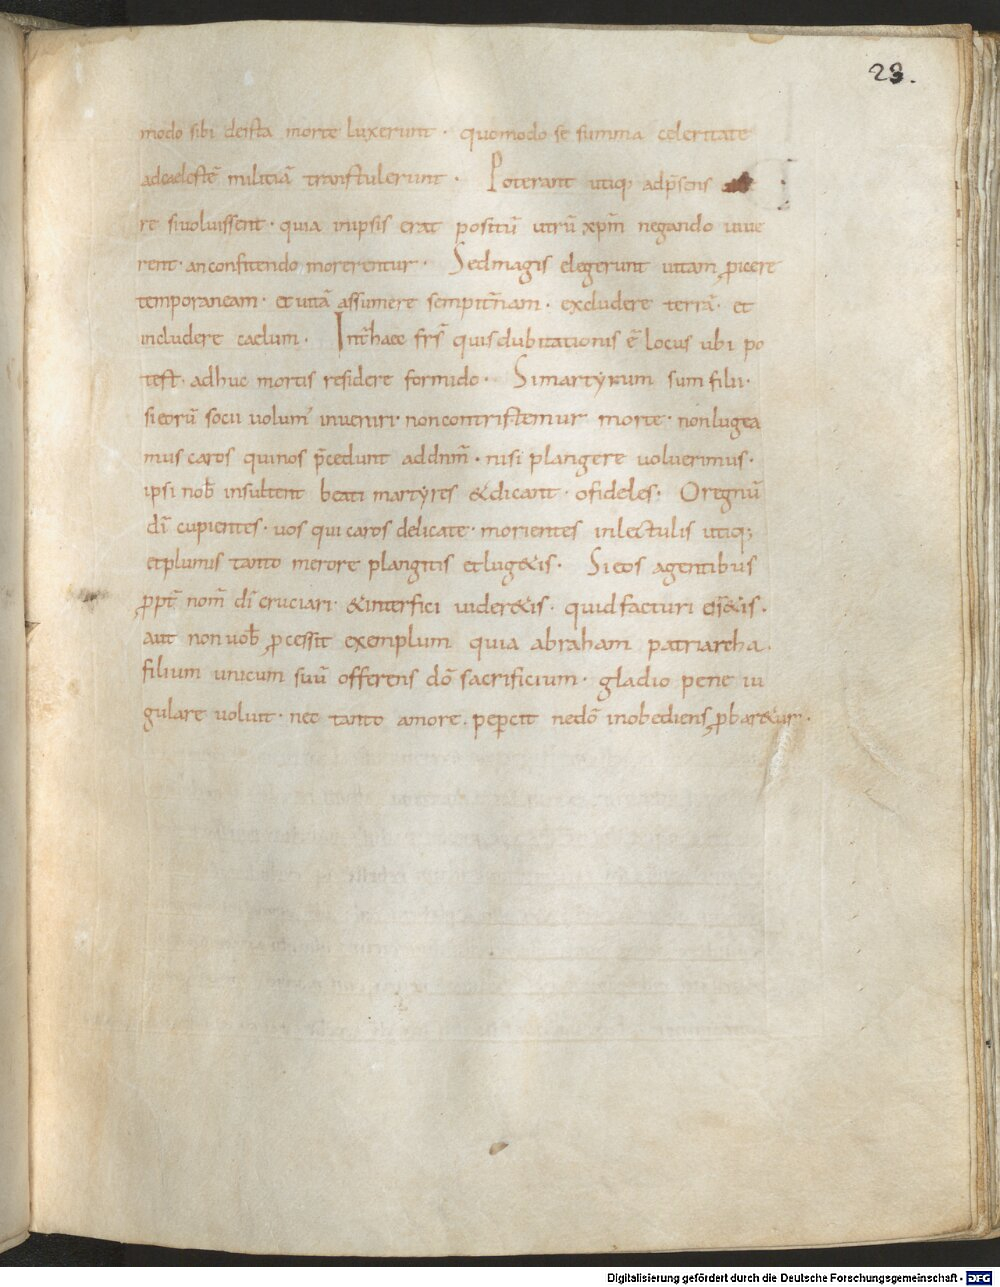 23.
modo sibi deista morte luxerunt · quomodo se summa celeritate
adcaelestē militiā transtulerunt · Poterant utiq; adp̄sens
re siuoluissent · quia inipsis erat positū utrū xp̄m negando uiue
rent · anconfitendo morerentur · Sedmagis elegerunt uitam ꝓicere
temporaneam · et uitā assumere sempit̄nam · excludere terrā · et
includere caelum · Int̄haec frs̄ quisdubitationis ē locus ubi po
test · adhuc mortis residere formido · Simartyrum sum filii ·
sieorū socii uolum' inueniri · noncontristemur morte · nonlugea
mus caros quinos p̄cedunt addnm̄ · nisi plangere uoluerimus ·
ipsi nob̄ insultent beati martyres &dicant · ofideles; Oregnū
dī cupientes · uos qui caros delicate · morientes inlectulis utiq;
etplumis tanto merore plangitis etlug&is · Sieos agentibus
ꝓpt̄ nom̄ dī cruciari · &interfici uider&is · quid facturi ess&is ·
aut non uob̄ ꝓcessit exemplum quia abraham patriarcha ·
filium unicum suū offerens dō sacrificium · gladio pene iu
gulare uoluit · nec tanto amore · peꝑcit nedō inobediens ꝓbar&ur ·
Digitalisierung gefördert durch die Deutsche Forschungsgemeinschaft - DFG